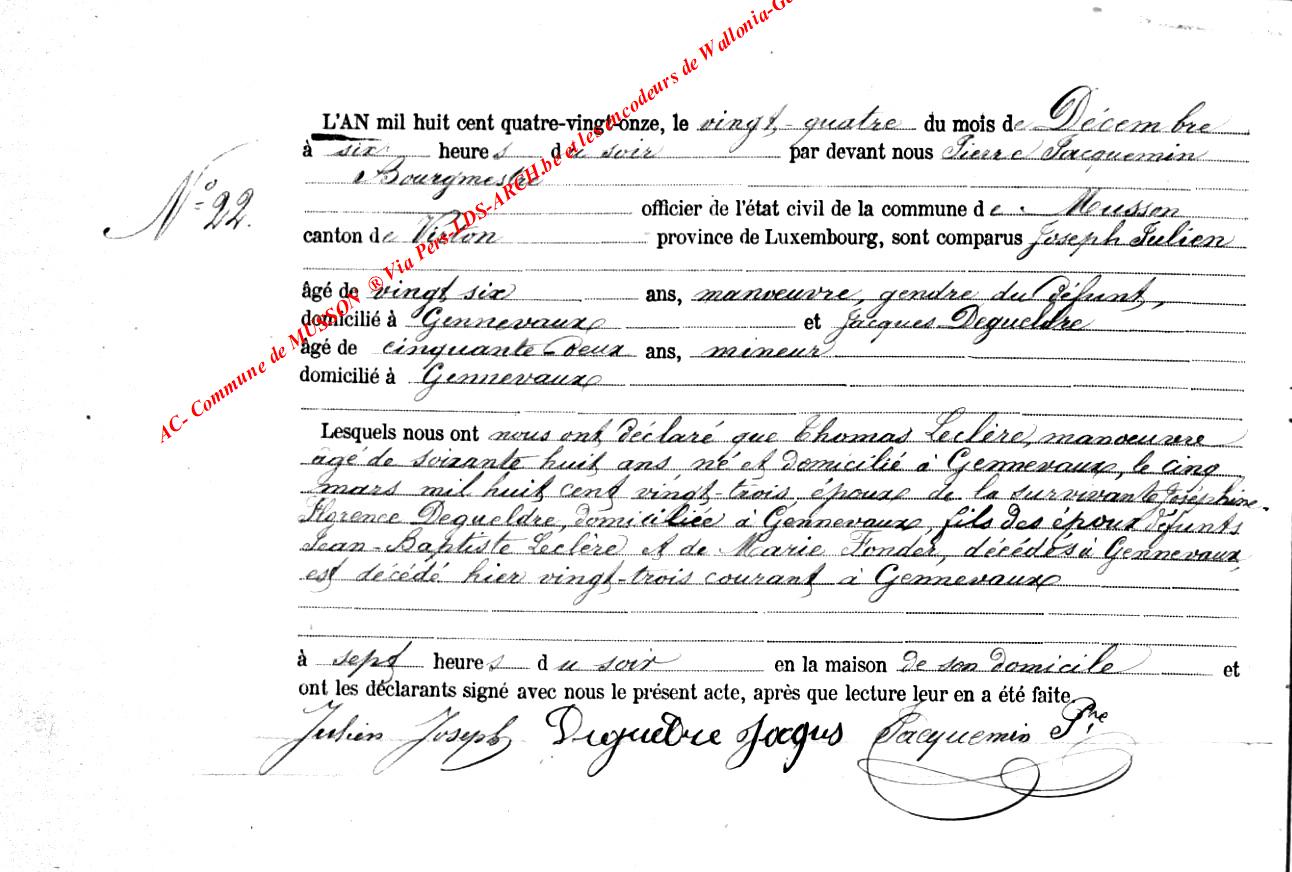 AC- Commune de MUSSON ® Via Pers-LDS-ARCH.be et les encodeurs de Wallonia-Ge
L'AN mil huit cent quatre-vingt-onze, le vingt-quatre du mois de Décembre
à six heures du soir par devant nous Pierre Jacquemin
Bourgmestre
N° 22.
officier de l'état civil de la commune de Musson
canton de Virton province de Luxembourg, sont comparus Joseph Julien
âgé de vingt six ans, manoeuvre, gendre du défunt,
domicilié à Gennevaux et Jacques Degueldre
âgé de cinquante deux ans, mineur
domicilié à Gennevaux
Lesquels nous ont nous ont déclaré que Thomas Leclère, manoeuvre
âgé de soixante huit ans né et domicilié à Gennevaux, le cinq
mars mil huit cent vingt-trois, époux de la survivante Joséphine-
Florence Degueldre, domiciliée à Gennevaux, fils des époux défunts
Jean-Baptiste Leclère et de Marie Fonder, décédés à Gennevaux,
est décédé hier vingt-trois courant à Gennevaux
à sept heures du soir en la maison de son domicile et
ont les déclarants signé avec nous le présent acte, après que lecture leur en a été faite.
Julien Joseph Degueldre Jaqus Jacquemin Pre